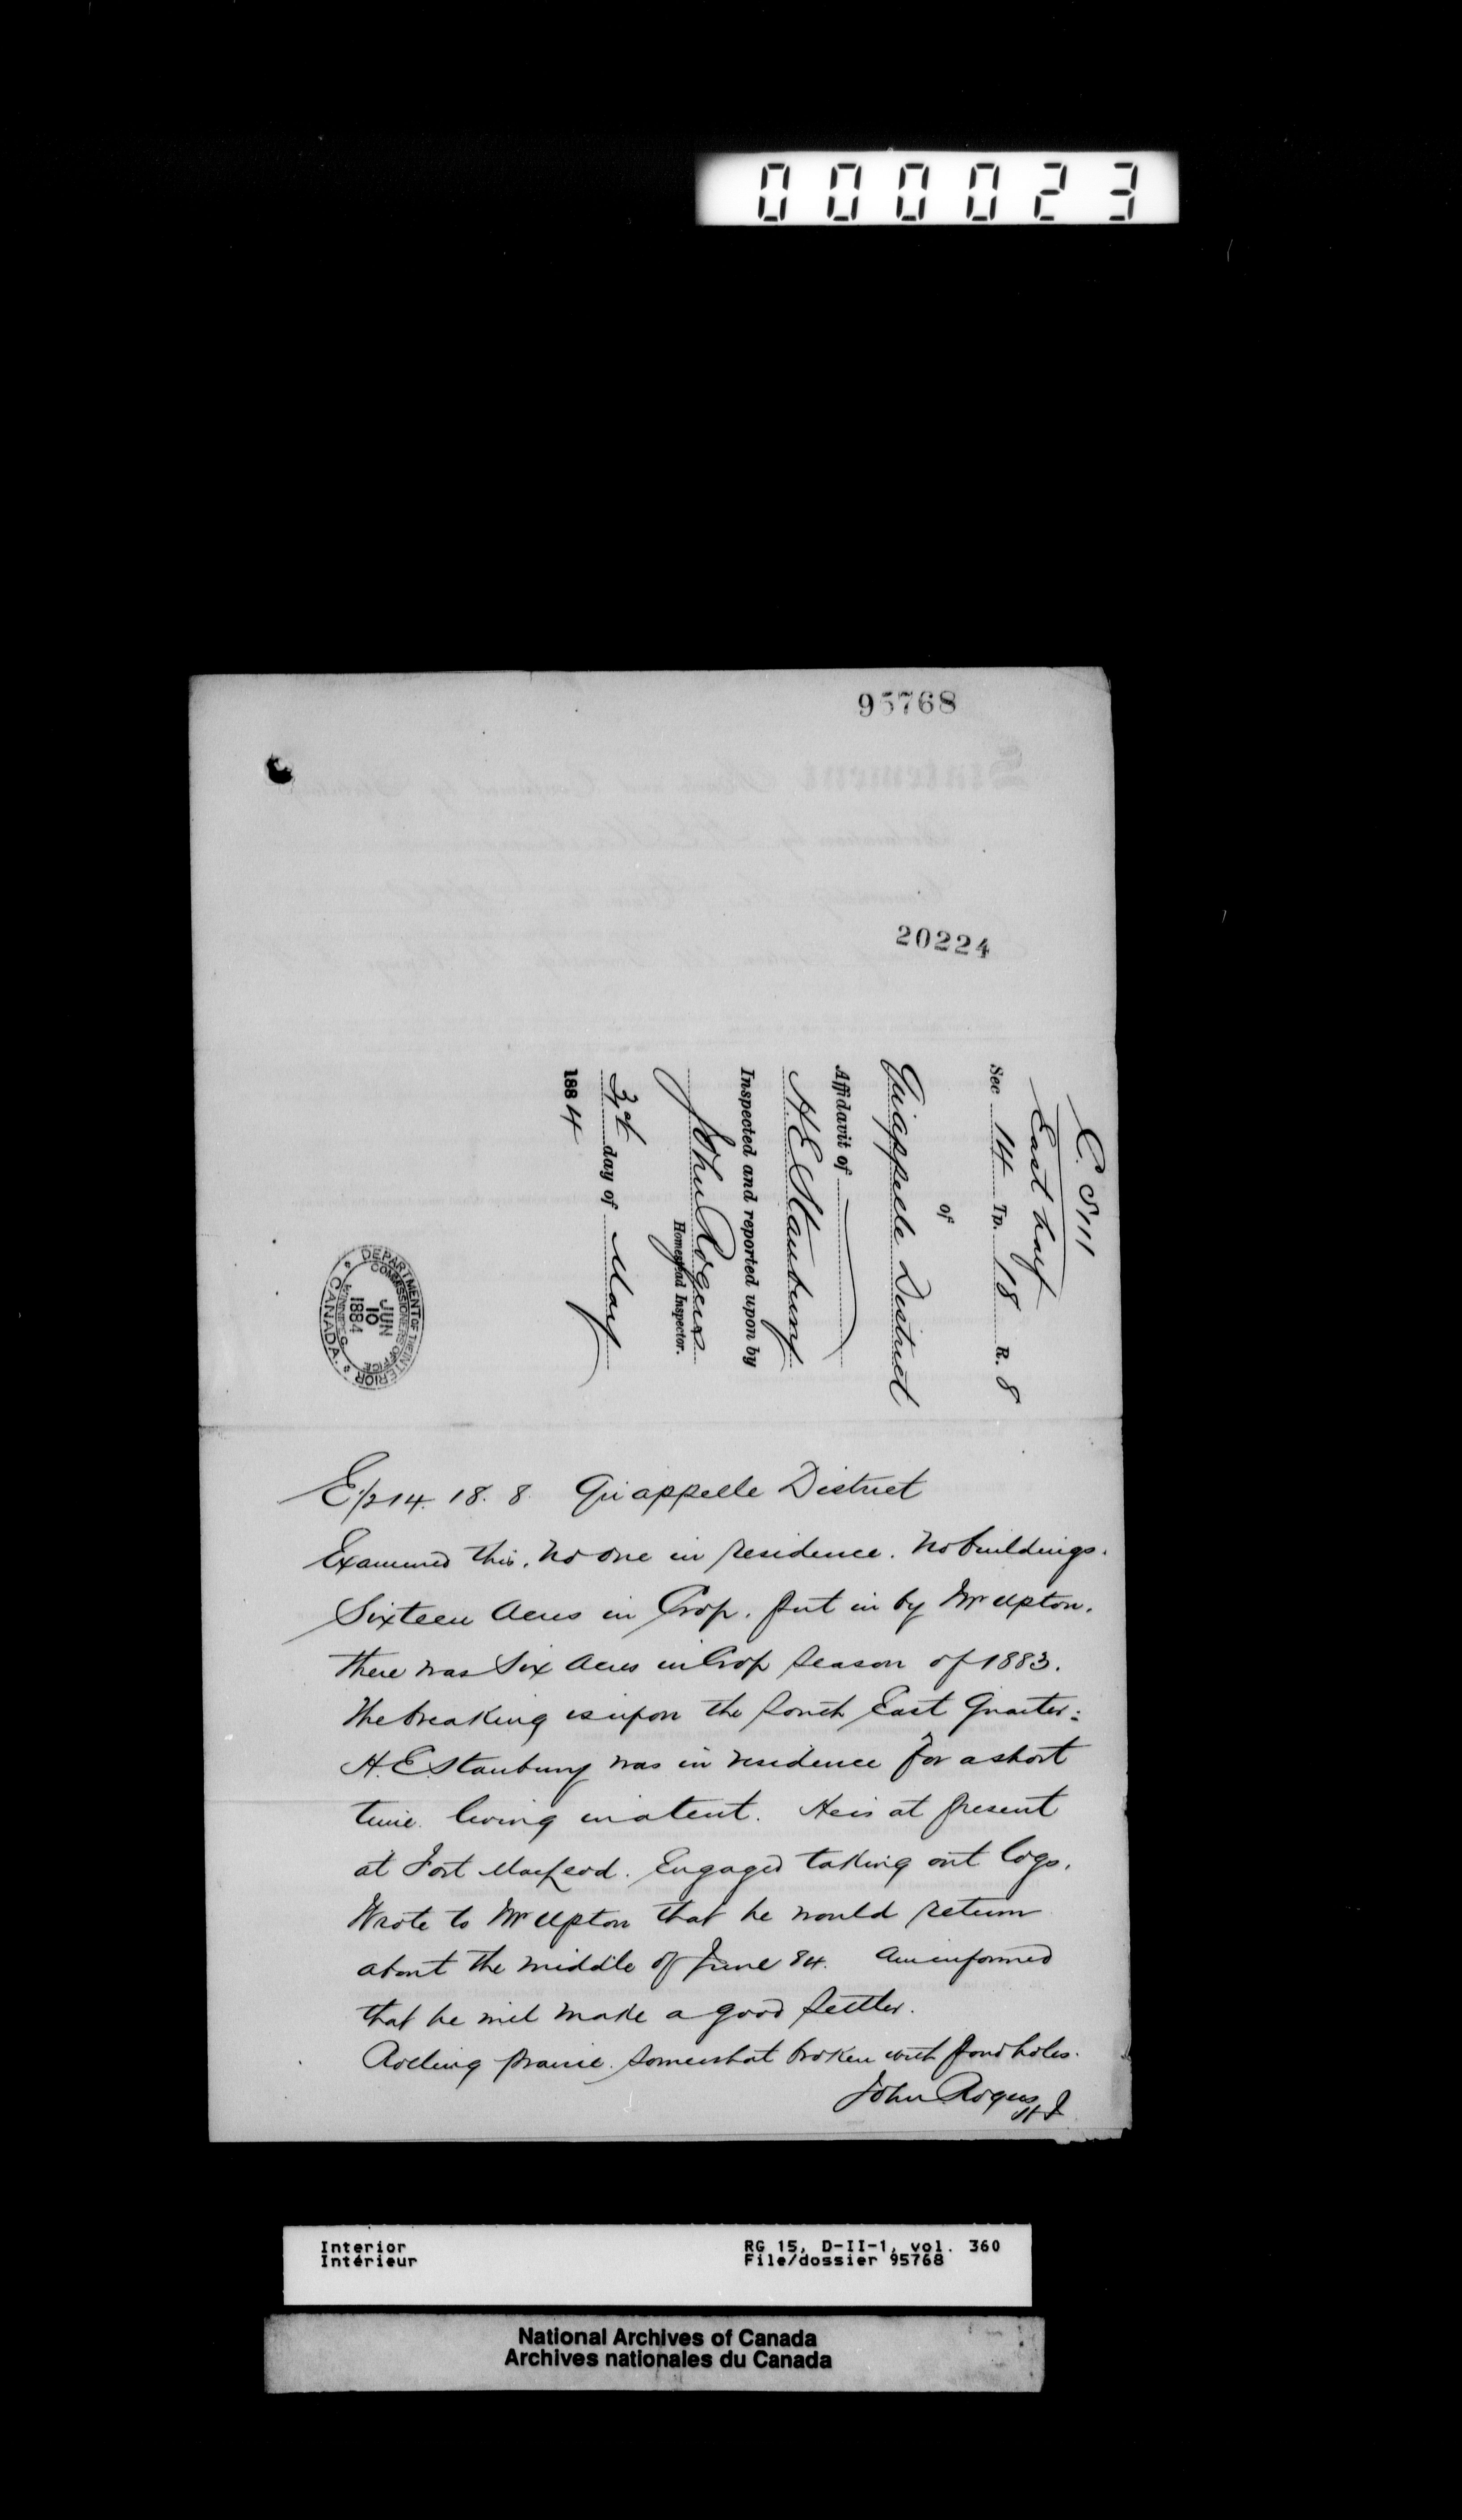 000023
95768
20224
C. 5111
East half
Sec 14 Tp. 18 R. 8
of
Qu'appelle District
Affidavit of
H E Stanbury
Inspected and reported upon by
John Rogers
Homestead Inspector.
day of May
1884
DEPARTMENT OF THE INTERIOR
COMMISSIONERS OFFICE
JUN
10
1884
WINNIPEG
CANADA.
E 1/2 14. 18. 8. Qu'appelle District
Examined this. No one in residence. No buildings.
Sixteen Acres in Crop. put in by Mr Upton.
there was Six Acres in Crop Season of 1883.
The breaking is upon the South East Quarter:
H. E. Stanbury was in residence for a short
time. living in a tent. He is at present
at Fort MacLeod. Engaged taking out logs.
Wrote to Mr Upton that he would return
about the middle of June 84. Am informed
that he will make a good Settler.
Rolling prairie. Somewhat broken with pond holes.
John Rogers
H I
Interior
Intérieur
RG 15, D-II-1, vol. 360
File/dossier 95768
National Archives of Canada
Archives nationales du Canada